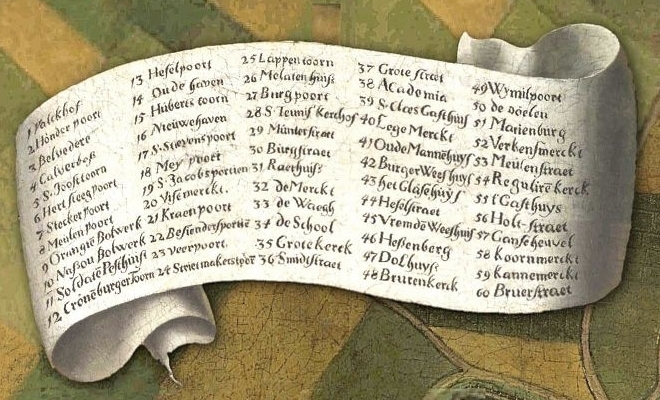 1 Valckhof
2 Honder poort
3 Belvedere
4 Calverbos
5 S. Joostoorn
6 Hertsteegpoort
7 Stecker poort
8 Meulen Poort
9 Orangie Bolwerk
10 Nassou Bolwerk
11 Soldate Peshuijs
12 Croneburger Toorn
13 Heselpoort
14 Oude haven
15 Huberts toorn
16 Nieuwehaven
17 S. Stevenspoort
18 Mey poort
19 S. Jacobs poortien
20 Vismerckt.
21 Kraen poort
22 Besiendersportie
23 Veerpoort
24 Smetmakerstpoe
25 Lappentoorn
26 Molaten huijs
27 Burg poort
28 S. Teunis Kerchof
29 Munterstraet
30 Burgstraet
31 Raethuijs
32 de Merckt
33 de Waegh
34 de School
35 Grote kerck
36 Smidstraet
37 Grote straet
38 Academia
39 S. Claes Gasthuijs
40 Lege Merckt
41 Oude Mannehuys
42 Burger Weeshuys
43 het Glasehuys
44 Heselstraet
45 Vremde Weeshuijs
46 Hessenberg
47 Dolhuys
48 Bruren kerck
49 Wymilpoort
50 de doelen
51 Marienburg
52 Verkensmerckt
53 Meulenstraet
54 Reguliere kerck
55 t Gasthuys
56 Holt-straet
57 Ganseheuvel
58 Koornmerckt
59 Kannemerckt
60 Bruerstraet